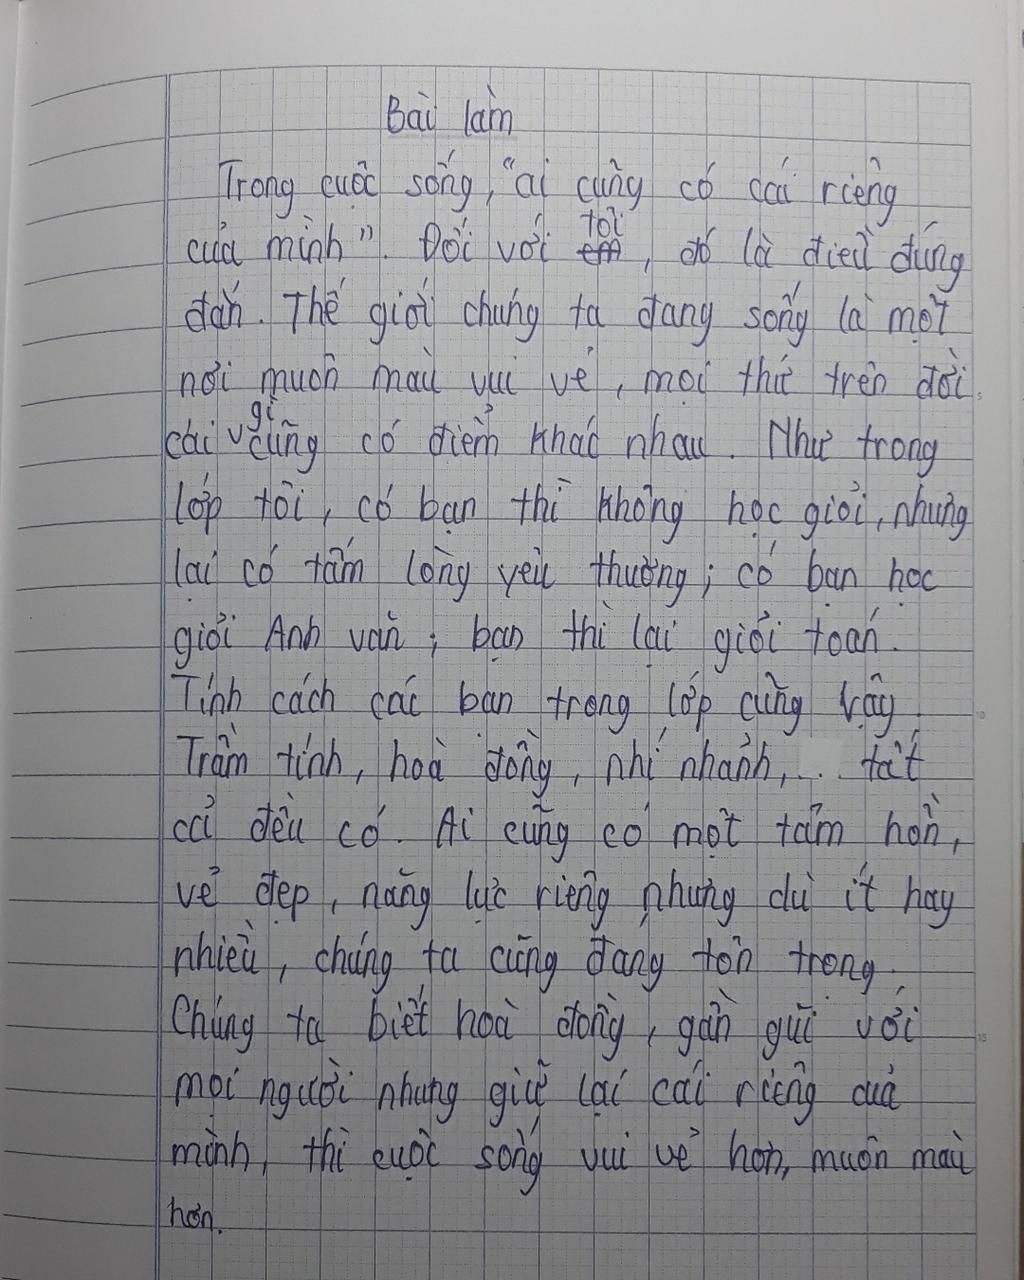 Bài làm
Trong cuộc sống, "ai cũng có cái riêng
của mình". Đối với tôi, đó là điều đúng
đắn. Thế giới chúng ta đang sống là một
nơi muôn màu vui vẻ, mọi thứ trên đời
cái gì cũng có điểm khác nhau. Như trong
lớp tôi, có bạn thì không học giỏi, nhưng
lại có tấm lòng yêu thương; có bạn học
giỏi Anh văn; bạn thì lại giỏi toán.
Tính cách các bạn trong lớp cũng vậy.
Trầm tính, hoà đồng, nhí nhảnh,... tất
cả đều có. Ai cũng có một tâm hồn,
vẻ đẹp, năng lực riêng nhưng dù ít hay
nhiều, chúng ta cũng đang tôn trọng.
Chúng ta biết hoà đồng, gần gũi với
mọi người nhưng giữ lại cái riêng của
mình, thì cuộc sống vui vẻ hơn, muôn màu
hơn.